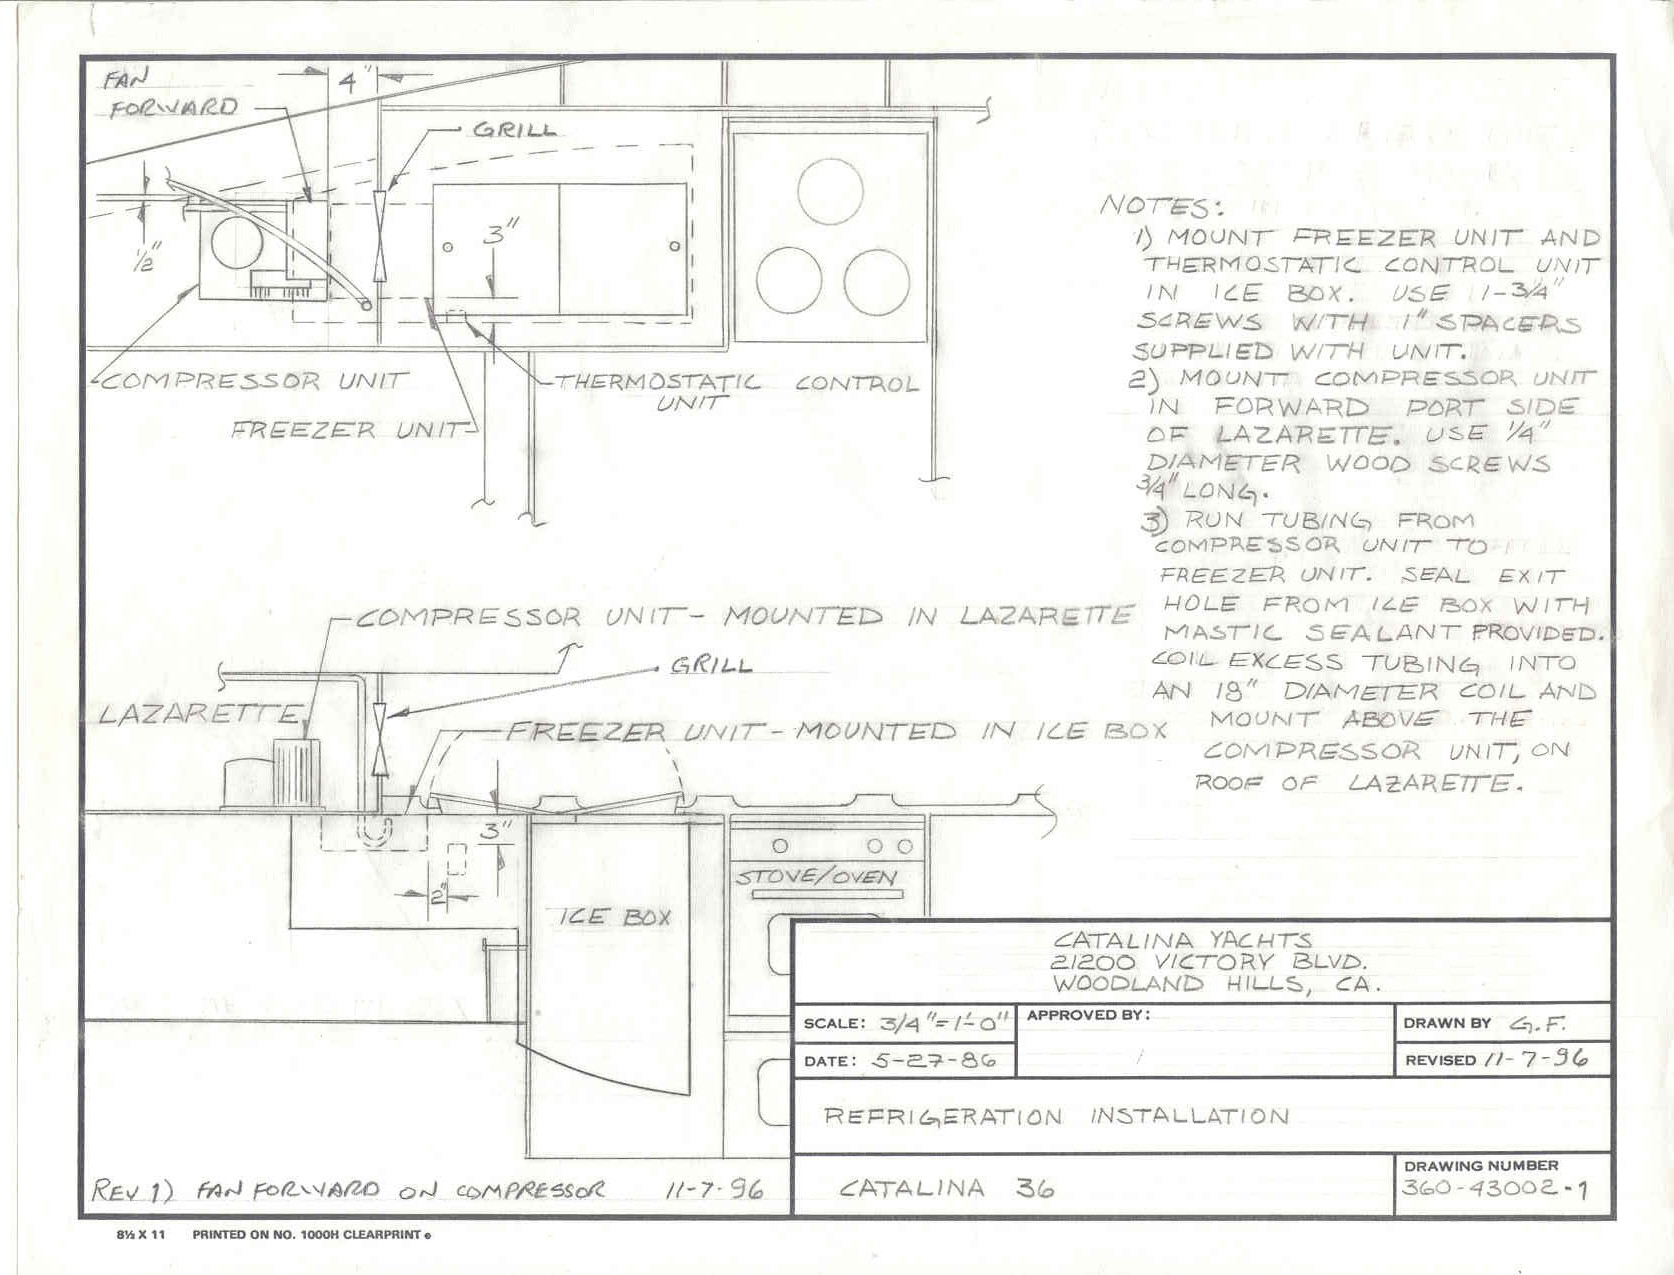 FAN
FORWARD
4"
GRILL
1/2"
3"
COMPRESSOR UNIT
THERMOSTATIC CONTROL
UNIT
FREEZER UNIT
NOTES:
1) MOUNT FREEZER UNIT AND
THERMOSTATIC CONTROL UNIT
IN ICE BOX. USE 1-3/4"
SCREWS WITH 1" SPACERS
SUPPLIED WITH UNIT.
2) MOUNT COMPRESSOR UNIT
IN FORWARD PORT SIDE
OF LAZARETTE. USE 1/4"
DIAMETER WOOD SCREWS
3/4" LONG.
3) RUN TUBING FROM
COMPRESSOR UNIT TO
FREEZER UNIT. SEAL EXIT
HOLE FROM ICE BOX WITH
MASTIC SEALANT PROVIDED.
COIL EXCESS TUBING INTO
AN 18" DIAMETER COIL AND
MOUNT ABOVE THE
COMPRESSOR UNIT, ON
ROOF OF LAZARETTE.
COMPRESSOR UNIT - MOUNTED IN LAZARETTE
GRILL
LAZARETTE
FREEZER UNIT - MOUNTED IN ICE BOX
3"
2"
ICE BOX
STOVE/OVEN
CATALINA YACHTS
21200 VICTORY BLVD.
WOODLAND HILLS, CA.
SCALE: 3/4"=1'-0"
APPROVED BY:
DRAWN BY G.F.
DATE: 5-27-86
REVISED 11-7-96
REFRIGERATION INSTALLATION
CATALINA 36
DRAWING NUMBER
360-43002-1
REV 1) FAN FORWARD ON COMPRESSOR 11-7-96
8½ X 11 PRINTED ON NO. 1000H CLEARPRINT